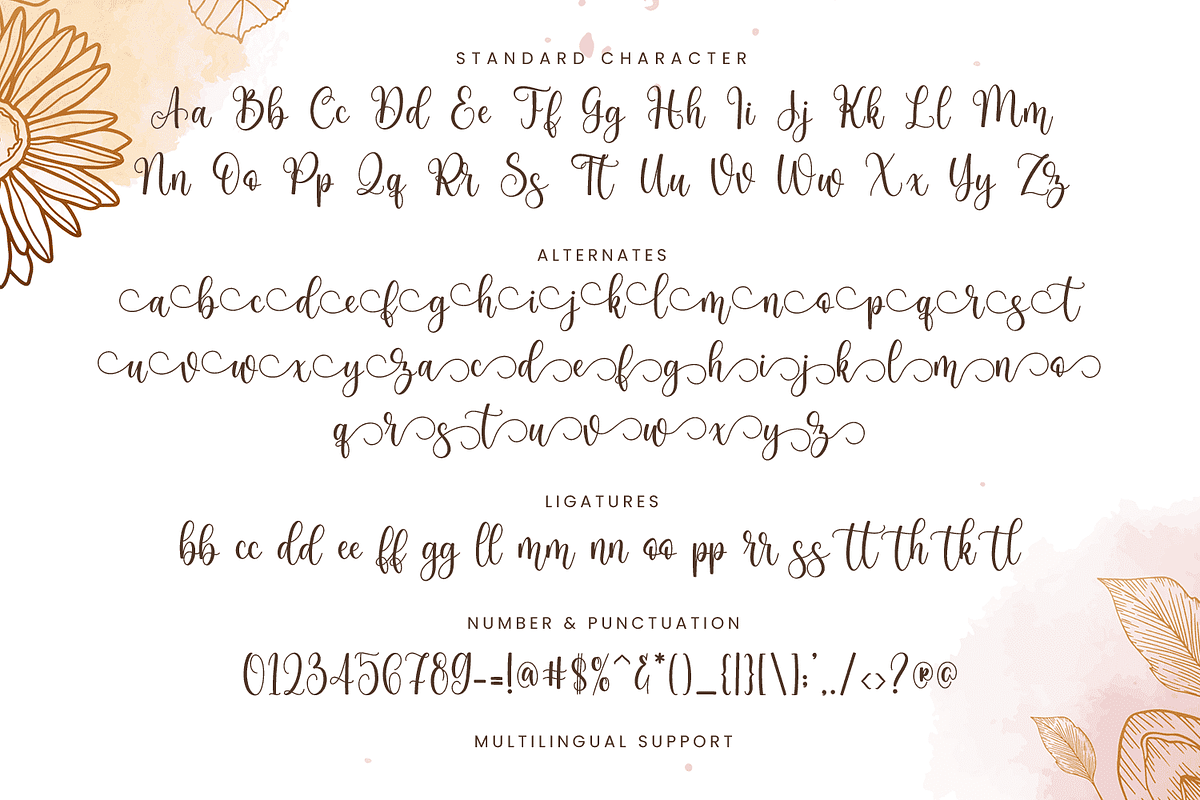 STANDARD CHARACTER
Aa Bb Cc Dd Ee Ff Gg Hh Ii Jj Kk Ll Mm
Nn Oo Pp Qq Rr Ss Tt Uu Vv Ww Xx Yy Zz
ALTERNATES
abcdefghijklmnopqrst
uvwxyzacdefghijklmno
qrstuvwxyz
LIGATURES
bb cc dd ee ff gg ll mm nn oo pp rr ss tt th tk tl
NUMBER & PUNCTUATION
0123456789-=!@#$%^&*()_{|}[\];',./<>?®©
MULTILINGUAL SUPPORT